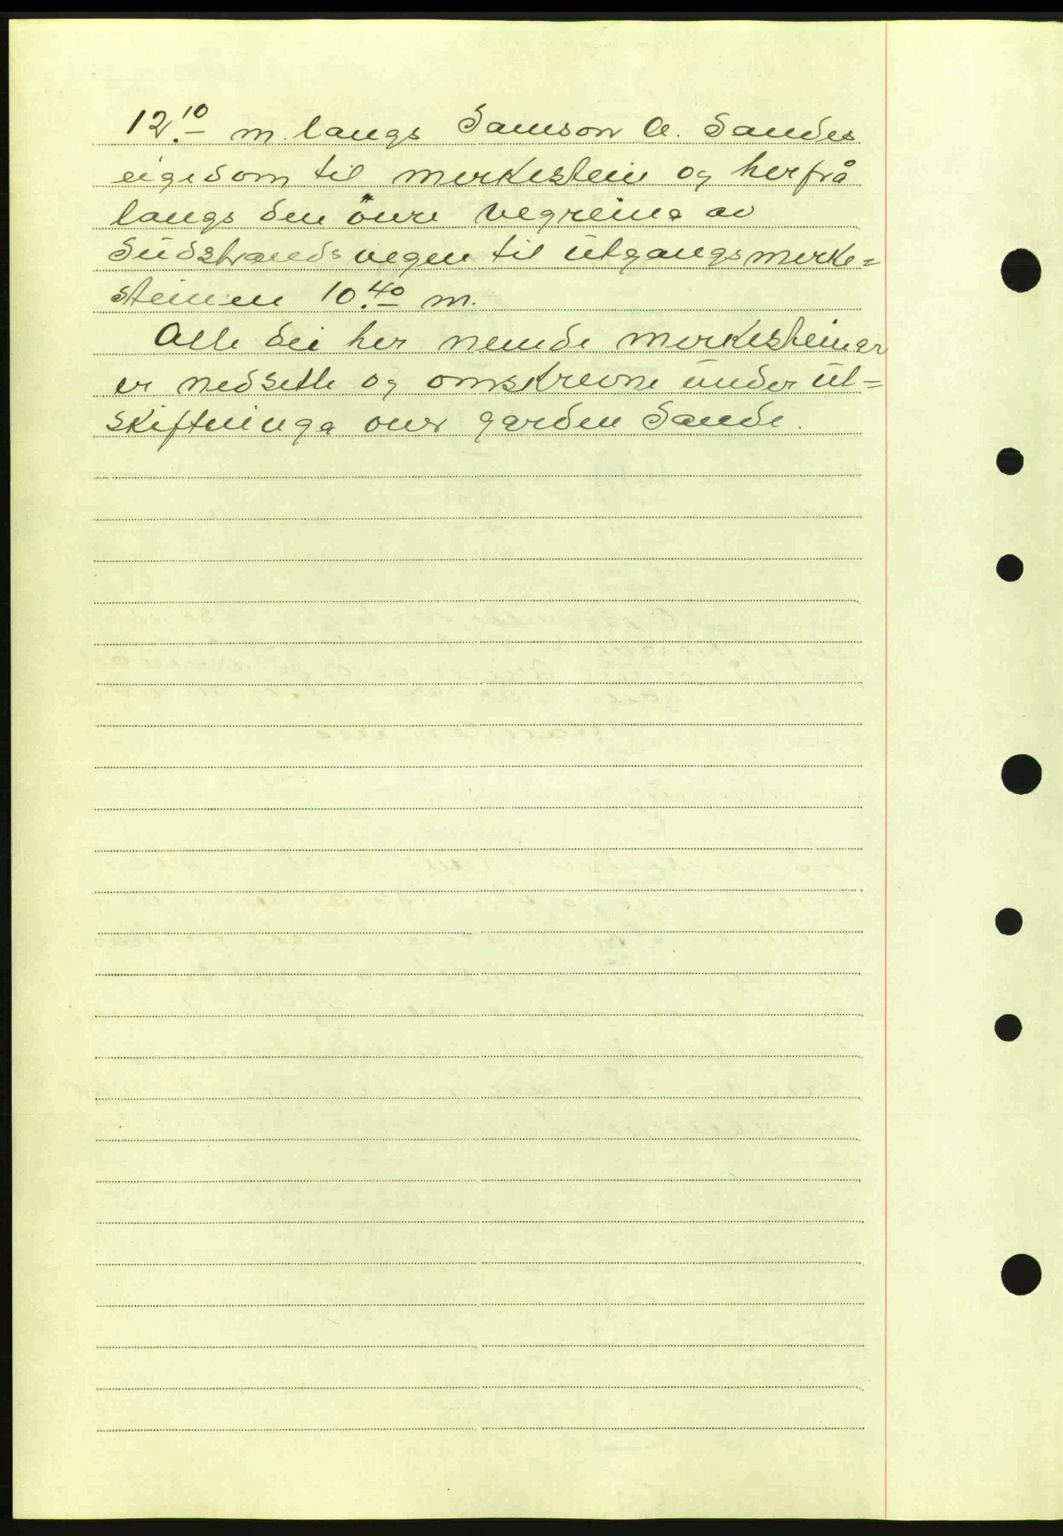 12.10 m. langs Samson A. Sandes
eigedom til merkestein og herfrå
langs den övre vegreina av
Sudstrandsvegen til utgangsmerke=
steinen 10.40 m.
Alle dei her nemde merkesteiner
er nedsette og omskrevne under ut=
skiftninga over garden Sande.